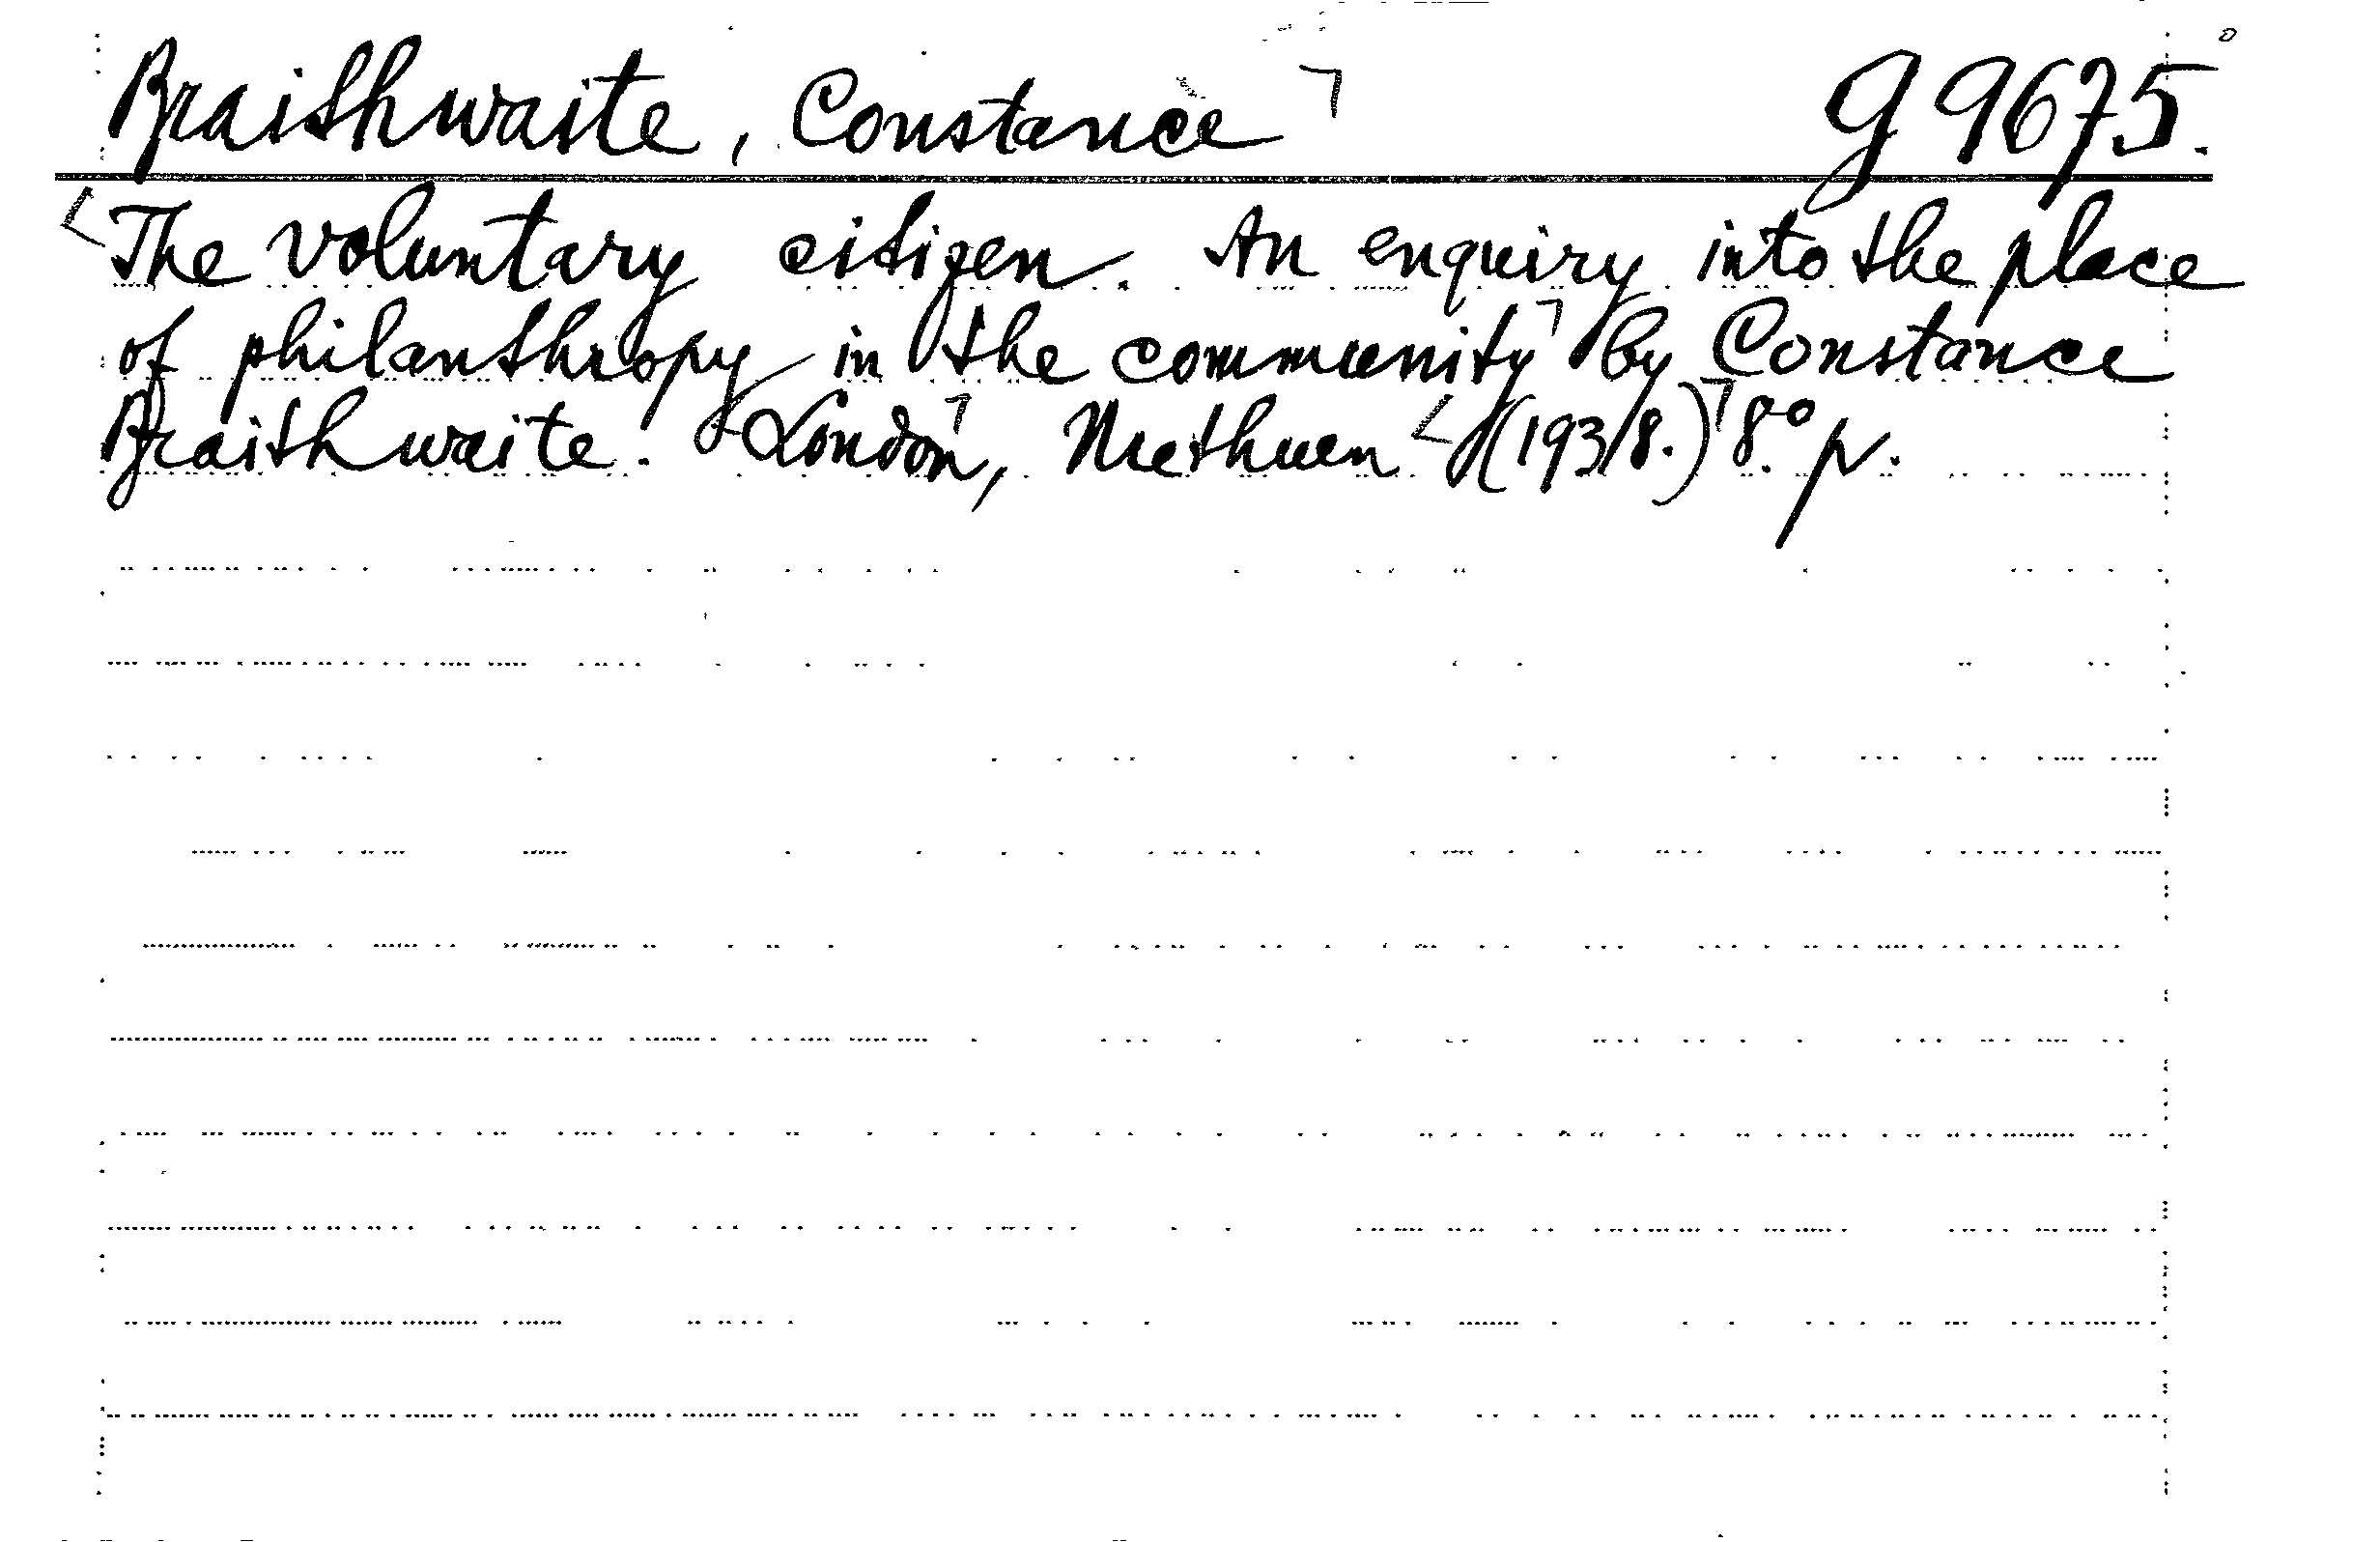 Braithwaite, Constance g 9675.
The voluntary citizen. An enquiry into the place
of philanthropy in the community by Constance
Braithwaite. London, Methuen (1938.) 8.° p.